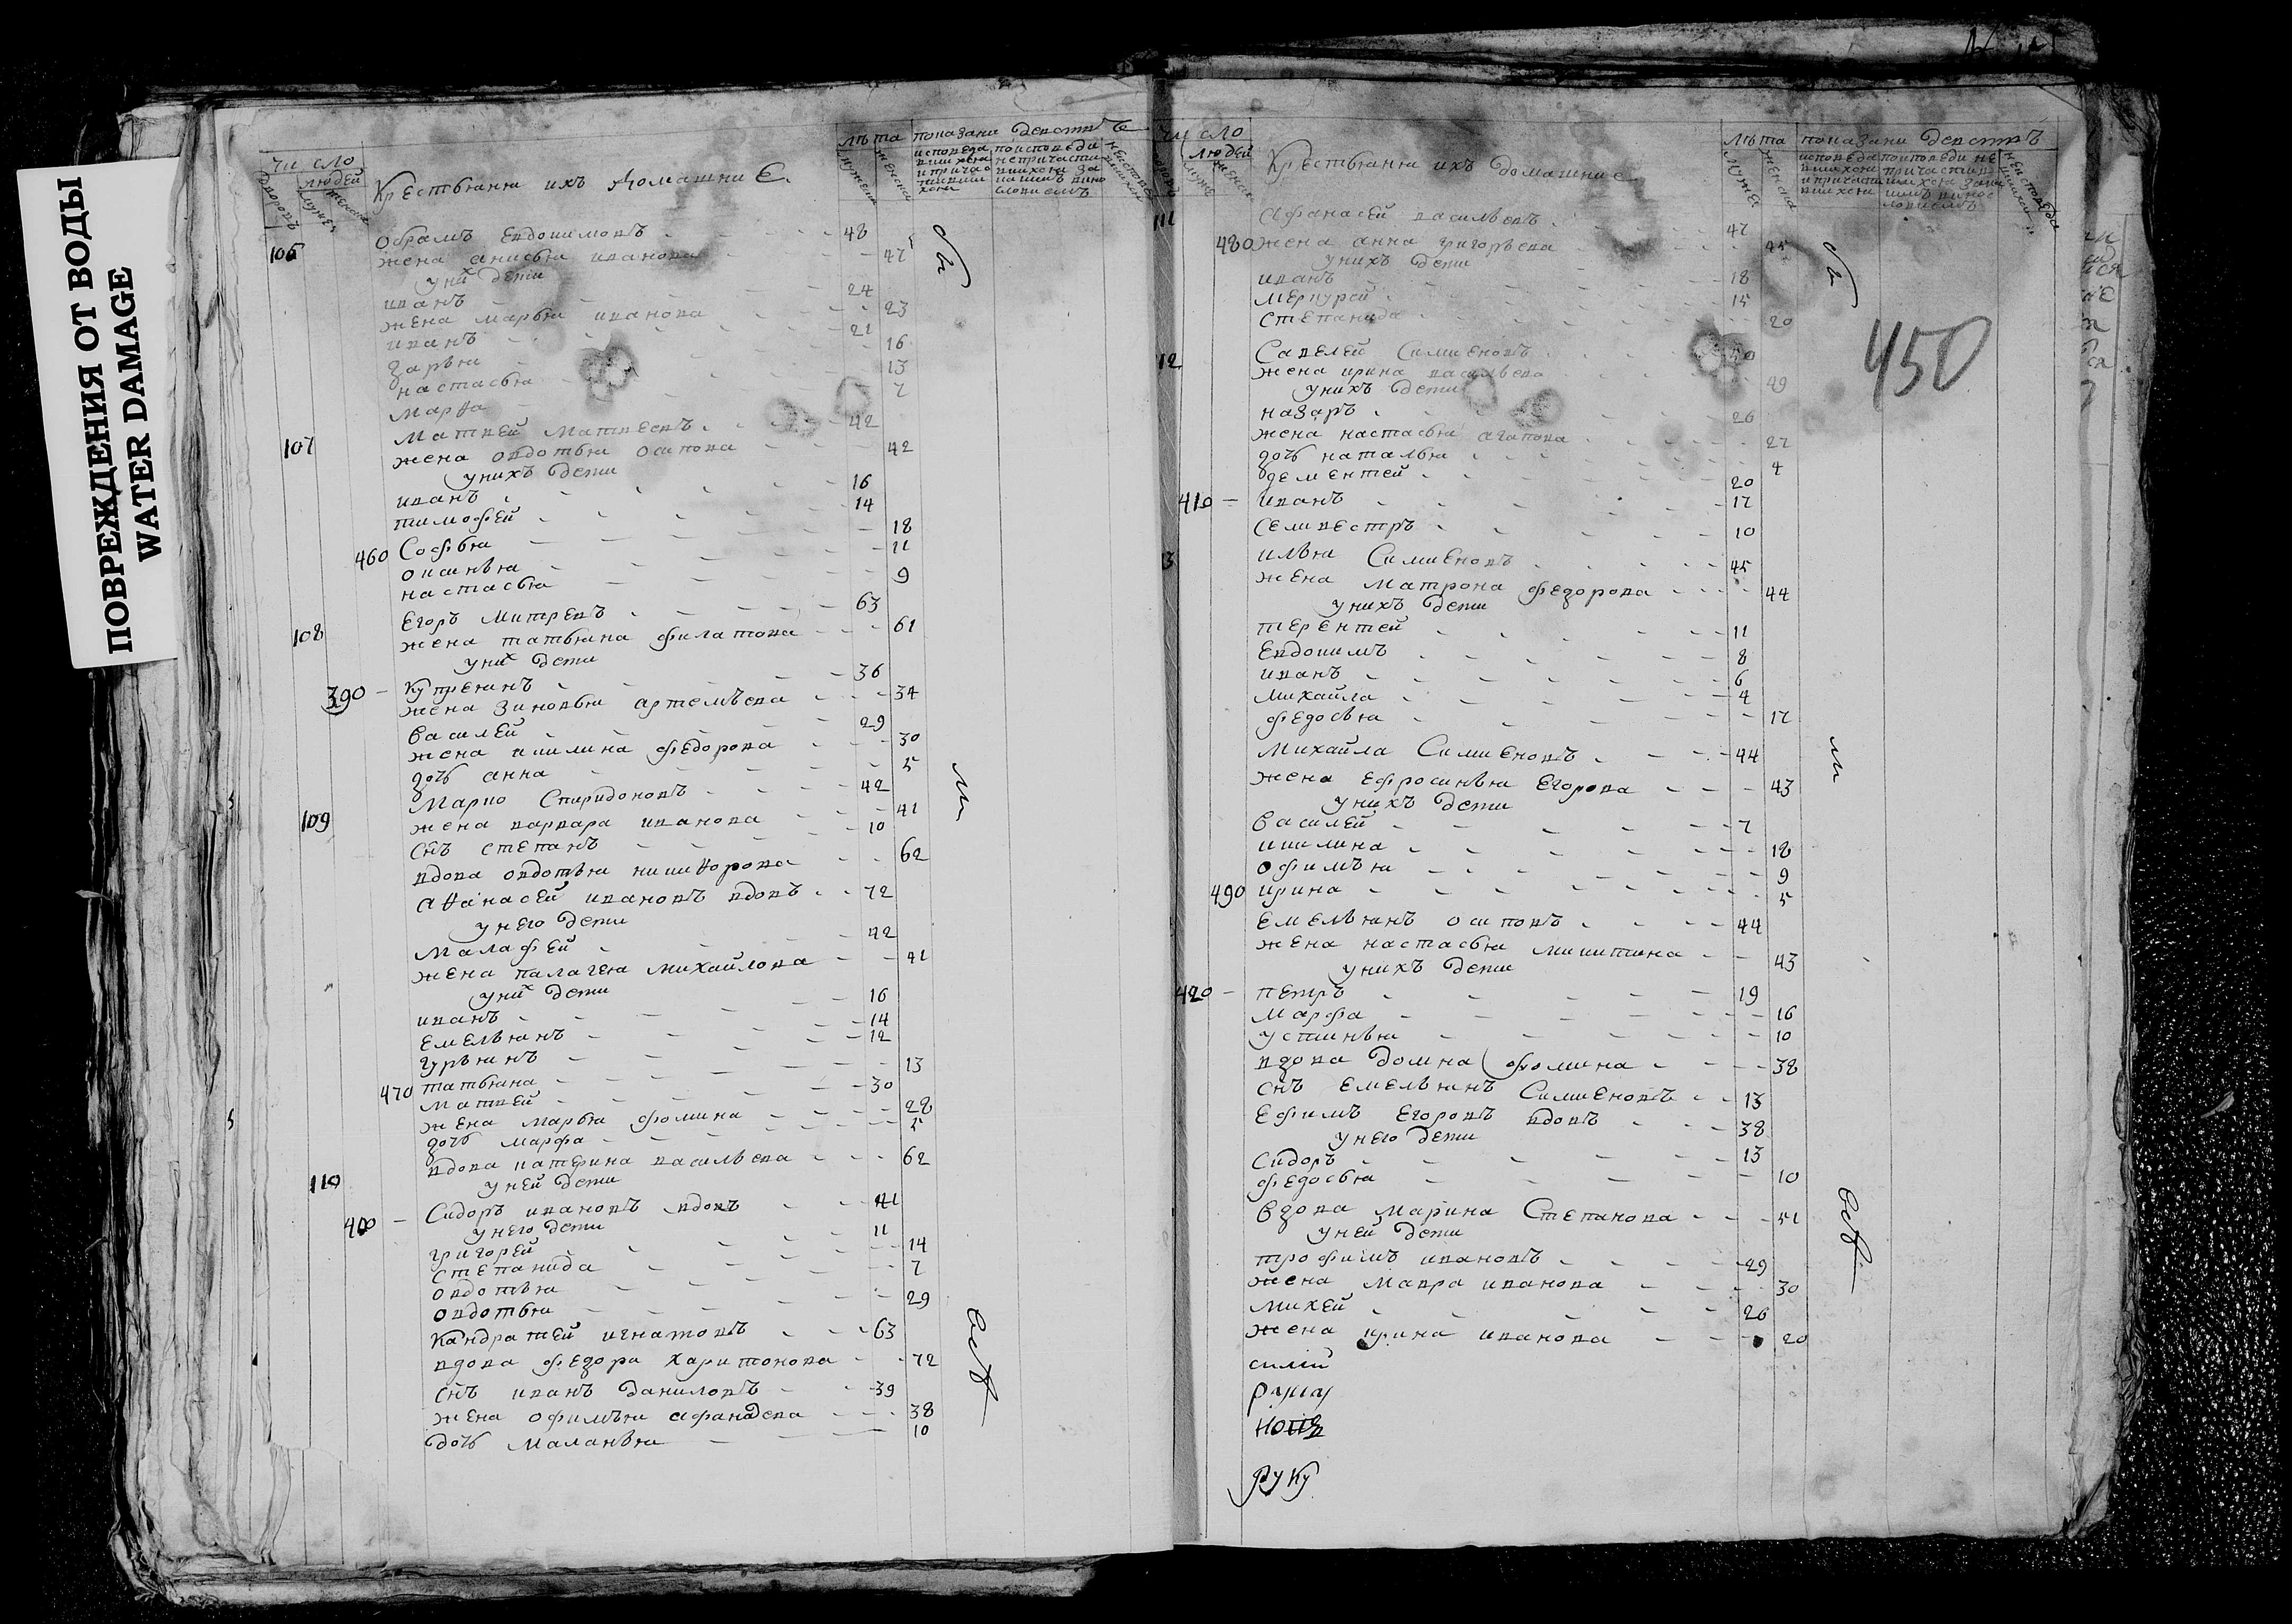 ПОВРЕЖДЕНИЯ ОТ ВОДЫ
WATER DAMAGE
чи сло
людей
дворовъ
мужеи
женска
Крестьяня ихъ домашние
лѣта
мужеии
женска
показани действъ
исповеда поисповеди
106 Обрамъ Евдокимовъ 48
жена анисья иванова 47
у них дети
иванъ 24
жена марья иванова 23
иванъ 21
дарья 16
настасья 13
марѳа 7
107 Матвей Матвеевъ 42
жена овдотья осипова 42
у нихъ дети
иванъ 16
тимофей 14
460 Софья 18
оксинья 11
настасья 9
108 Егоръ Митревъ 63
жена татьяна филатова 61
у них дети
390 Купреянъ 36
жена зиновья артемьева 34
василей 29
жена акилина федорова 30
дочь анна 5
109 Марко Спиридоновъ 42
жена варвара иванова 41
снъ степанъ 10
вдова овдотья никиѳорова 62
аѳанасей ивановъ вдовъ 72
у него дети
Малафей 42
жена палагея михайлова 41
у них дети
иванъ 16
емельянъ 14
гурьянъ 12
470 татьяна 13
матвей 30
жена марья фомина 28
дочь марфа 5
110 вдова катерина васильева 62
у ней дети
400 Сидоръ ивановъ вдовъ 41
у него дети
григорей 11
степанида 14
овдотья 7
овдотья 29
Кандратей игнатовъ 63
вдова федора харитонова 72
снъ иванъ даниловъ 39
жена офимья афанасева 38
дочь маланья 10
бы
ли
всѣ
чи сло
людей
Крестьяня ихъ домашние
лѣта
показани действъ
111 афанасей васильевъ 47
480 жена анна григорьева 45
у нихъ дети
иванъ 18
меркурей 15
степанида 20
12 Савелей Симионовъ 50
жена ирина васильева 49
у нихъ дети
назаръ 26
жена настасья агапова 27
дочь наталья 4
дементей 20
410 иванъ 17
селивестръ 10
13 илья Симионовъ 45
жена матрона федорова 44
у нихъ дети
терентей 11
Евдокимъ 8
иванъ 6
михайла 4
федосья 17
Михайла Симионовъ 44
жена ефросинья Егорова 43
у нихъ дети
василей 7
акилина 18
офимья 9
490 ирина 5
емельянъ осиповъ 44
жена настасья микитина 43
у нихъ дети
420 петръ 19
Марфа 16
устинья 10
вдова домна фомина 38
снъ емельянъ Симионовъ 13
ефимъ егоровъ вдовъ 38
у него дети
Сидоръ 13
федосья 10
вдова марина Степанова 51
у ней дети
трофимъ ивановъ 29
жена мавра иванова 30
михей 26
жена ирина иванова 20
руку
бы
450
ли
всѣ